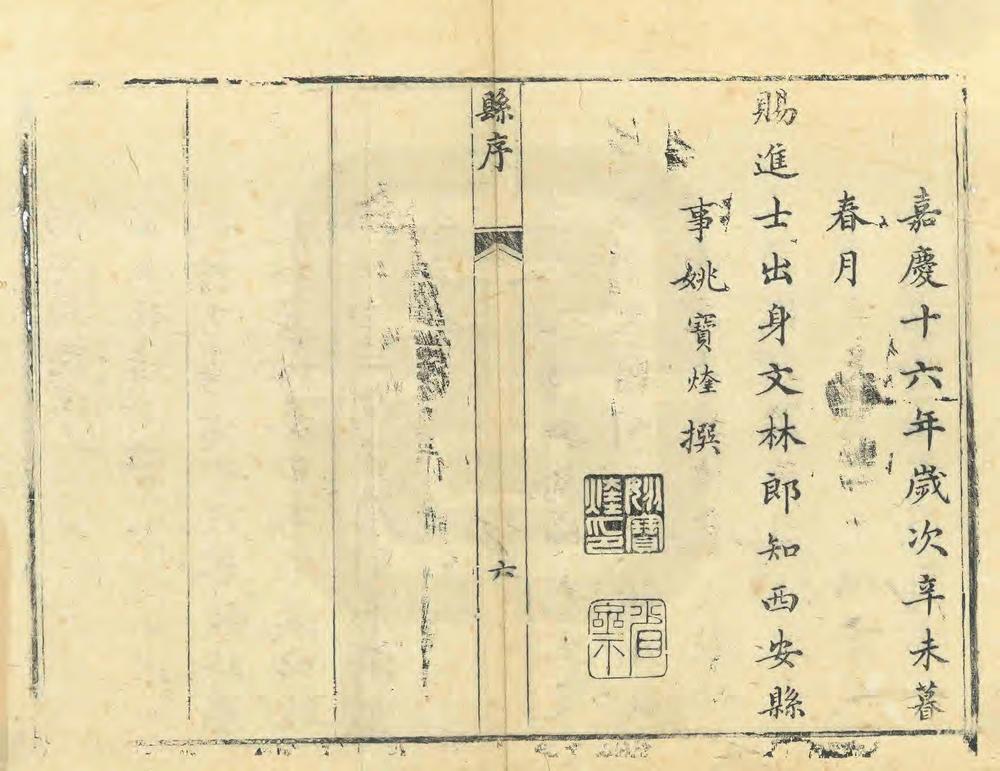 嘉慶十六年歲次辛未暮
春月
賜進士出身文林郎知西安縣
事姚寶煃撰
姚寶煃印
縣序
六